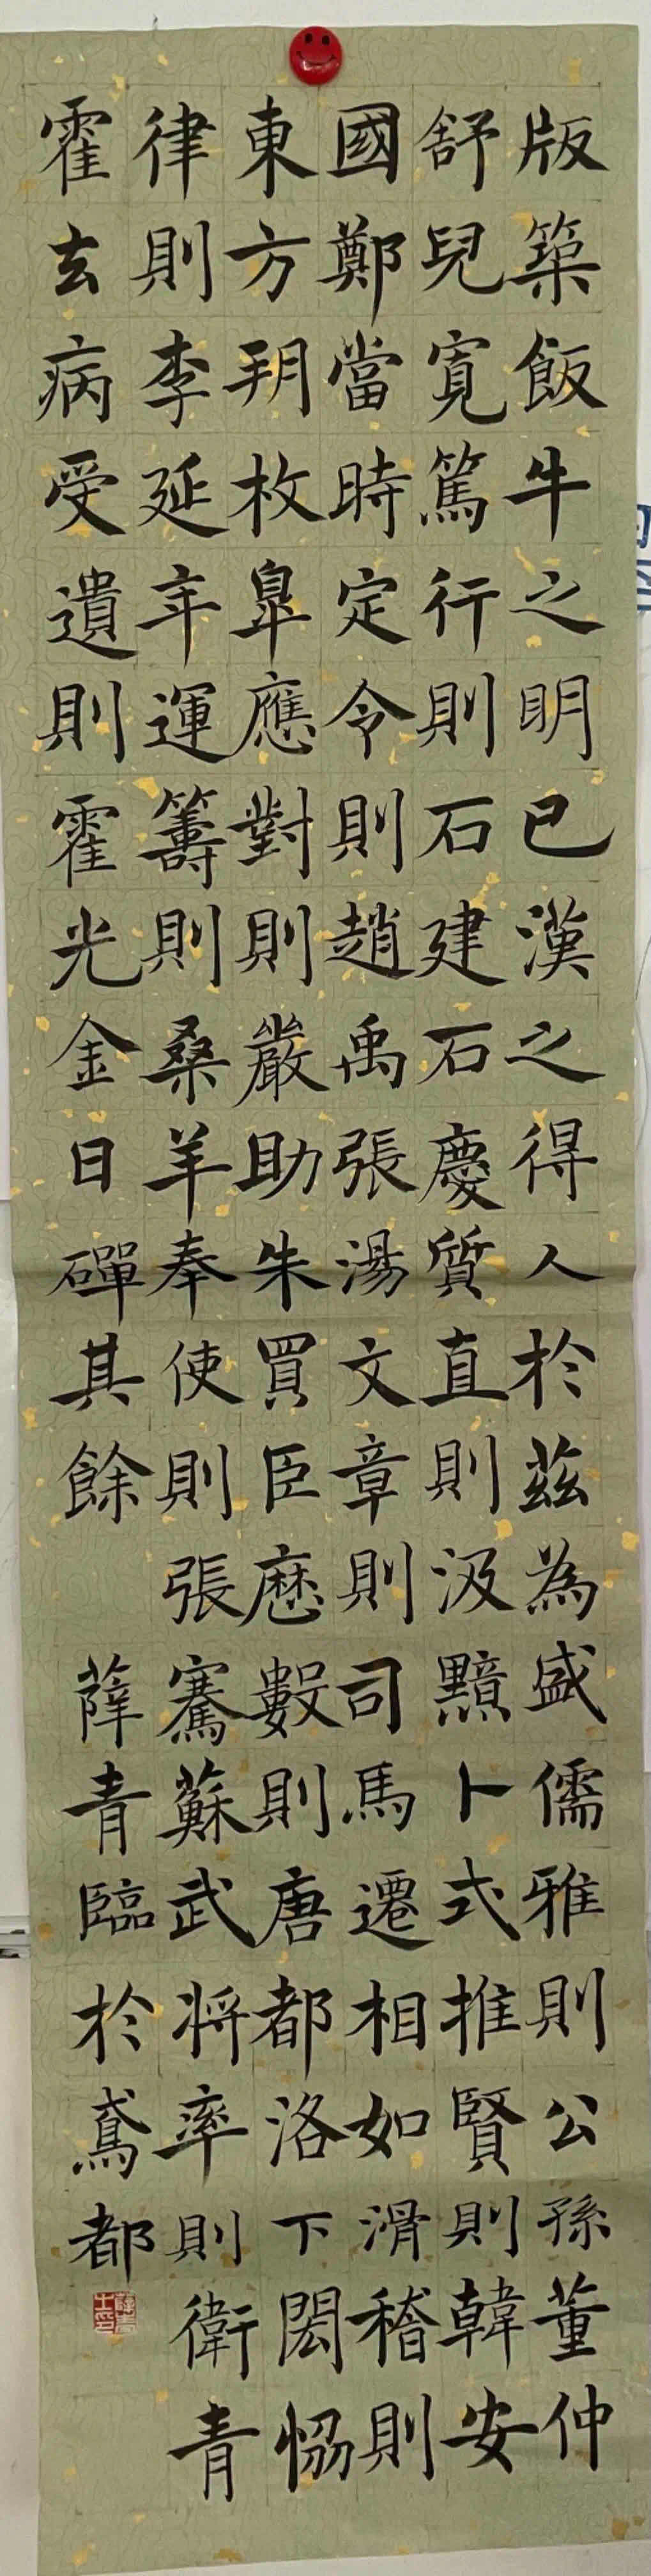 版築飯牛之明已漢之得人於茲為盛儒雅則公孫董仲
舒兒寬篤行則石建石慶質直則汲黯卜式推賢則韓安
國鄭當時定令則趙禹張湯文章則司馬遷相如滑稽則
東方朔枚皐應對則嚴助朱買臣歷數則唐都洛下閎恊
律則李延年運籌則桑羊奉使則張騫蘇武將率則衛青
霍去病受遺則霍光金日磾其餘
薛青臨於鳶都